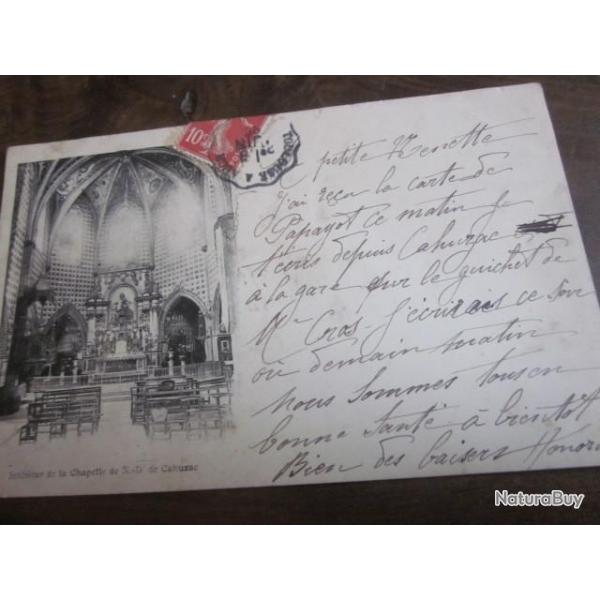 10c
TOULOUSE A
petite Venette
J'ai reçu la carte de
Papayot ce matin Je
t'écris depuis Cahuzac
à la gare sur le guichet de
Mr Cros - J'écrirais ce soir
où demain matin
nous sommes tous en
bonne Santé à bientôt
Bien des baisers Honoré
Intérieur de la Chapelle de N.-D. de Cahuzac
NaturaBuy